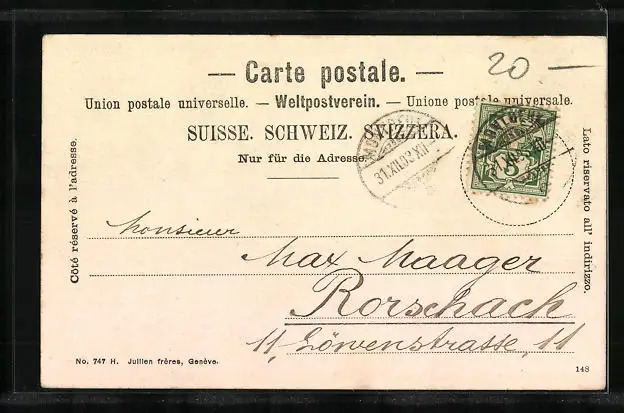 20.—
— Carte postale. —
Union postale universelle. — Weltpostverein. — Unione postale universale.
SUISSE. SCHWEIZ. SVIZZERA.
Nur für die Adresse.
MONTREUX
31.XII.03.XII
MONTREUX
5
Côté réservé à l'adresse.
Lato riservato all' indirizzo.
Monsieur
Max Maager
Rorschach
11, Löwenstrasse, 11
No. 747 H. Jullien frères, Genève.
148